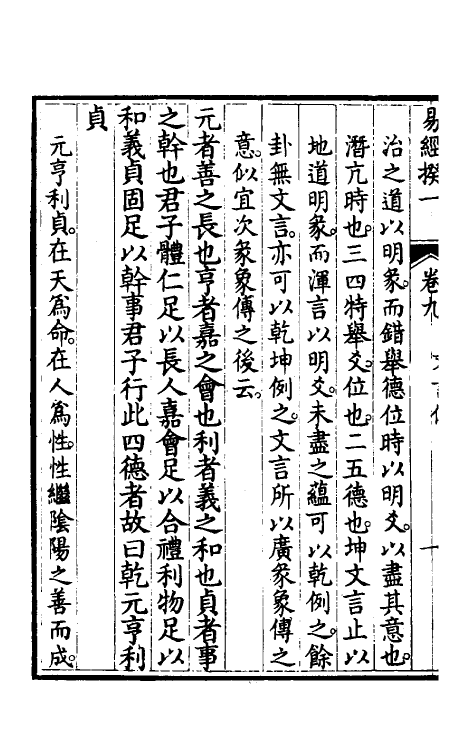 易經揆一 卷九 文言傳 一
治之道以明彖。而錯舉德位時以明爻。以盡其意也。
潛亢時也。三四特舉爻。位也。二五德也。坤文言止以
地道明彖。而渾言以明爻。未盡之蘊可以乾例之。餘
卦無文言。亦可以乾坤例之。文言所以廣彖象傳之
意。似宜次彖象傳之後云。
元者善之長也亨者嘉之會也利者義之和也貞者事
之幹也君子體仁足以長人嘉會足以合禮利物足以
和義貞固足以幹事君子行此四德者故曰乾元亨利
貞
元亨利貞。在天為命。在人為性。性繼陰陽之善而成。